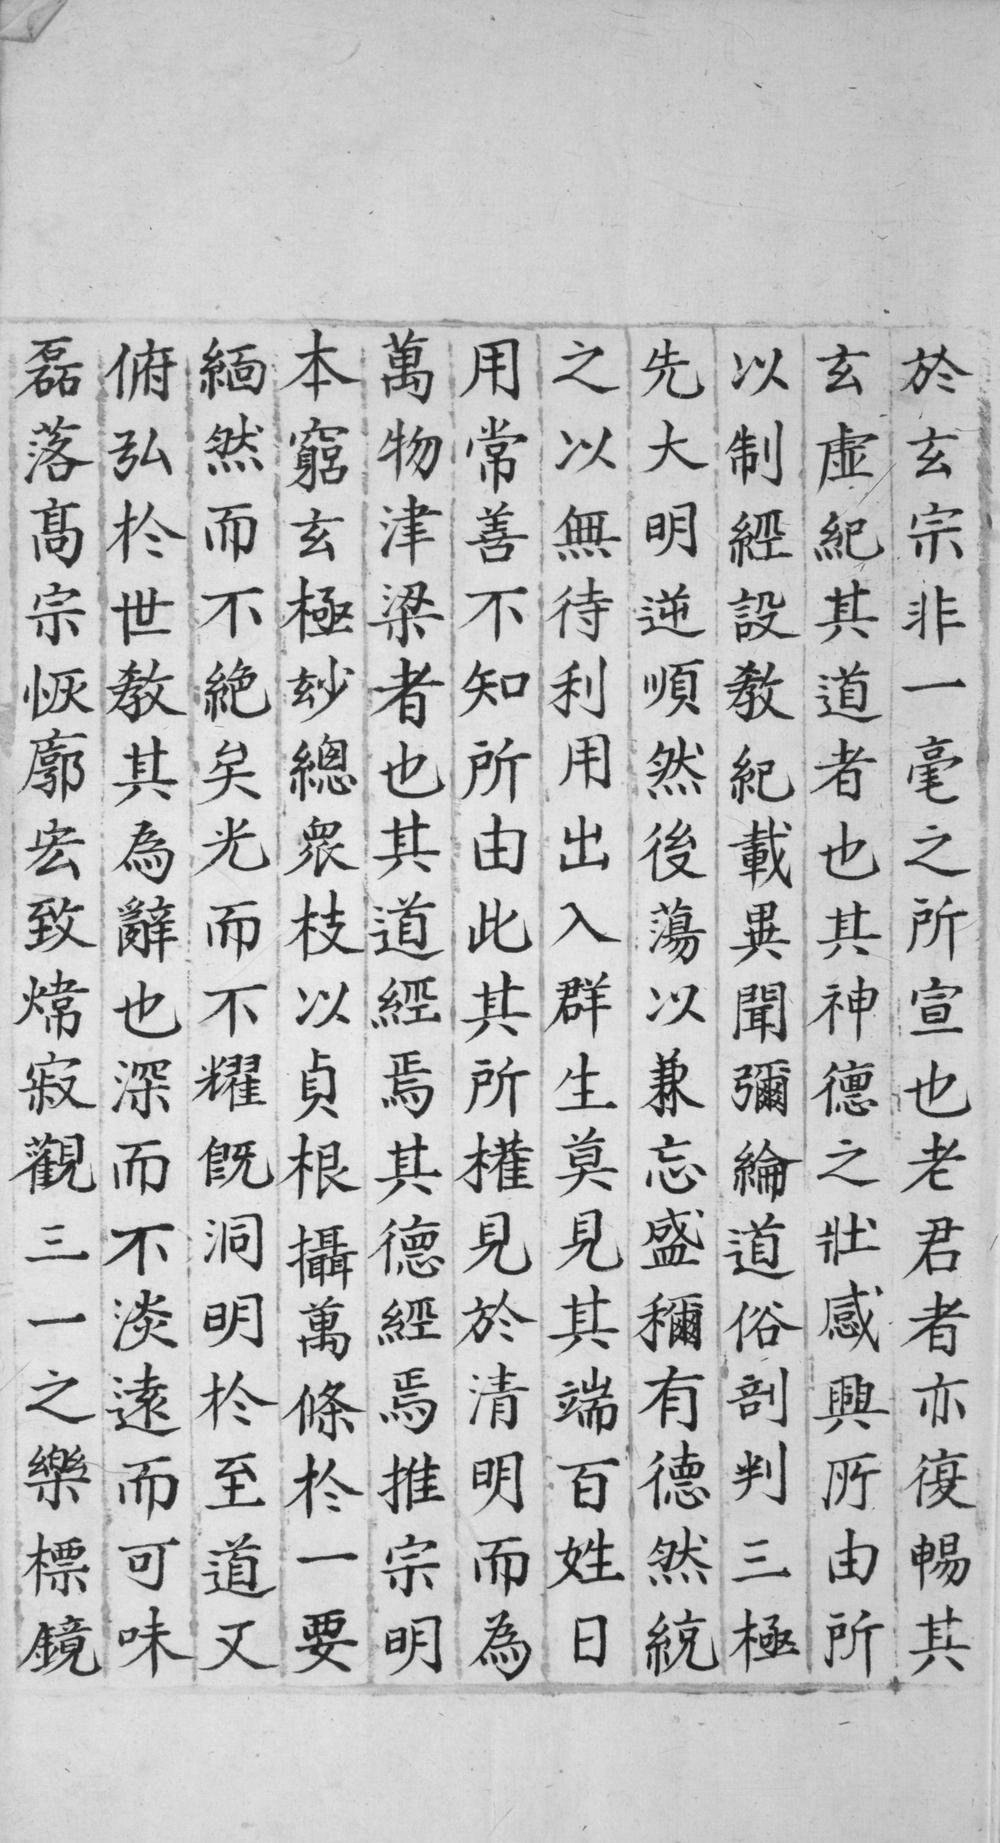 於玄宗非一毫之所宣也老君者亦復暢其
玄虛紀其道者也其神德之壯感興所由所
以制經設教紀載異聞彌綸道俗剖判三極
先大明逆順然後蕩以兼忘盛稱有德然統
之以無待利用出入群生莫見其端百姓日
用常善不知所由此其所權見於清明而為
萬物津梁者也其道經焉其德經焉推宗明
本窮玄極妙總衆枝以貞根攝萬條於一要
緬然而不絕矣光而不耀既洞明於至道又
俯弘於世教其為辭也深而不淡遠而可味
磊落高宗恢廓宏致煒寂觀三一之樂標鏡